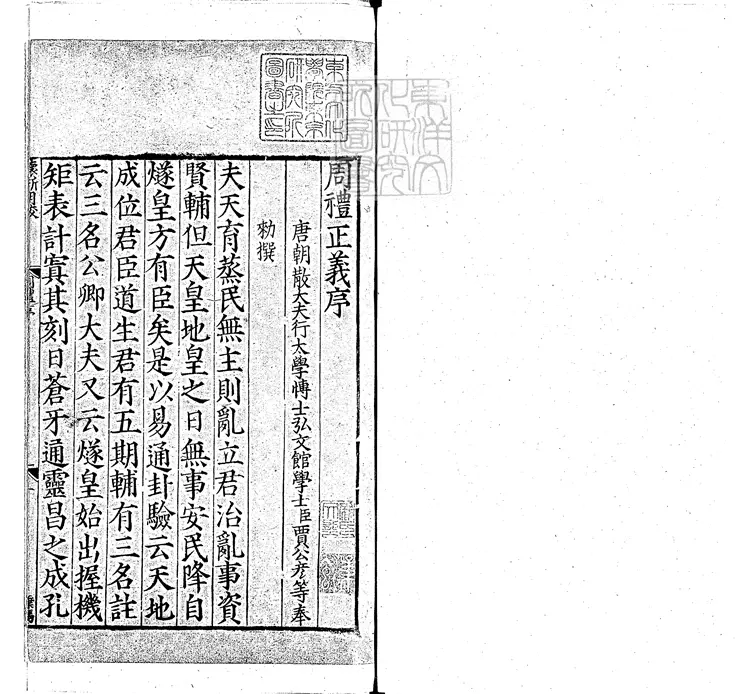 周禮正義序
唐朝散大夫行太學博士弘文館學士臣賈公彦等奉
勑撰
夫天育蒸民無主則亂立君治亂事資
賢輔但天皇地皇之日無事安民降自
燧皇方有臣矣是以易通卦驗云天地
成位君臣道生君有五期輔有三名註
云三名公卿大夫又云燧皇始出握機
矩表計寘其刻日蒼牙通靈昌之成孔
東方文化學院東京研究所圖書之印